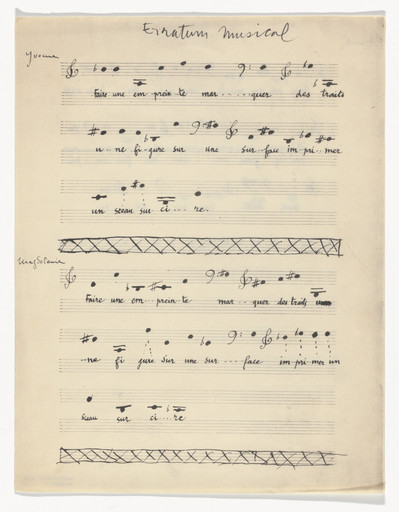 Erratum Musical
Yvonne
Faire une em prein te mar - - - - quer des traits
u - ne fi - gure sur une sur - face im - pri - mer
un sceau sur ci - - - re.
Magdeleine
Faire une em - prein - te mar - - quer des traits u
- ne fi gure sur une sur - - - - face im pri mer un
sceau sur ci - - re